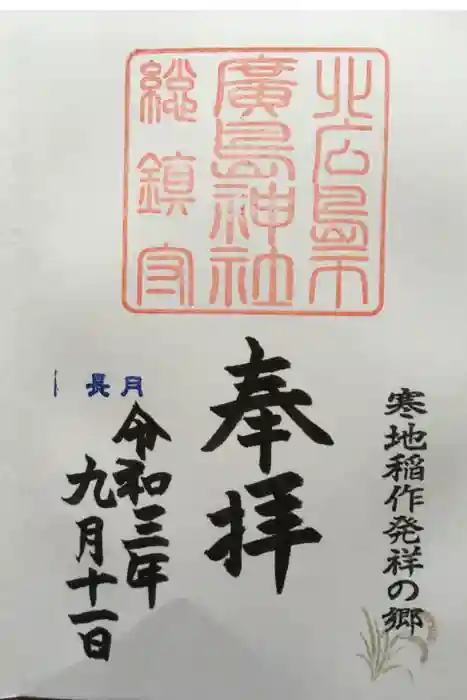 北広島市
廣島神社
総鎮守
寒地稲作発祥の郷
奉拝
長月
令和三年
九月十一日